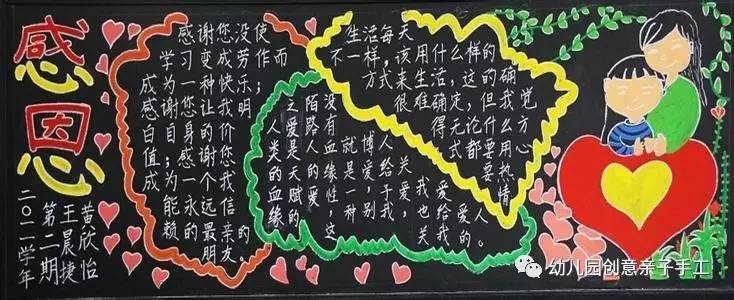 感恩
二〇一一学年
第二期
王晨捷
黄欣怡
感谢您没使
学习变成劳作而
成为一种快乐；
感谢您让我明
白自身的价
值；感谢您
成为一个我
能永远信
赖的最亲
朋友。
人类的血缘
之爱是天赋的
陌路人的爱
没有血缘性，这
就是一种
博爱，别
人给于我
关爱，
我也关
爱给我
爱的
人。
生活每天
不一样，该用什么样的
方式来生活，这的确
很难确定，但我觉
得无论什么方
式都要用心
要热情。
幼儿园创意亲子手工